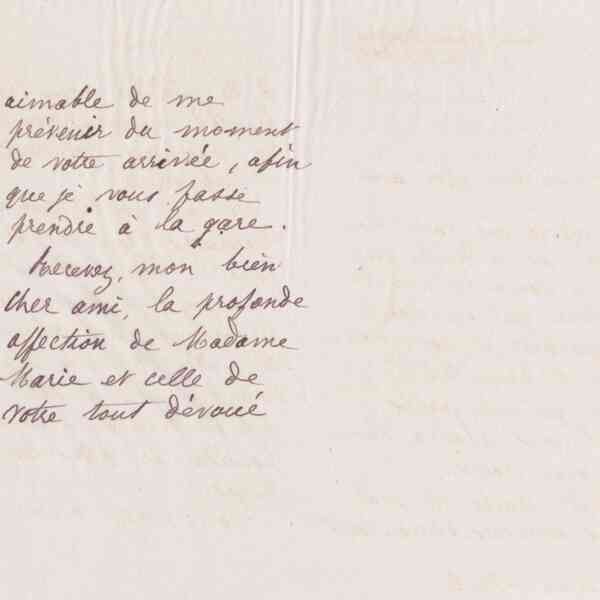 aimable de me
prévenir du moment
de votre arrivée, afin
que je vous fasse
prendre à la gare.
Recevez, mon bien
cher ami, la profonde
affection de Madame
Marie et celle de
votre tout dévoué